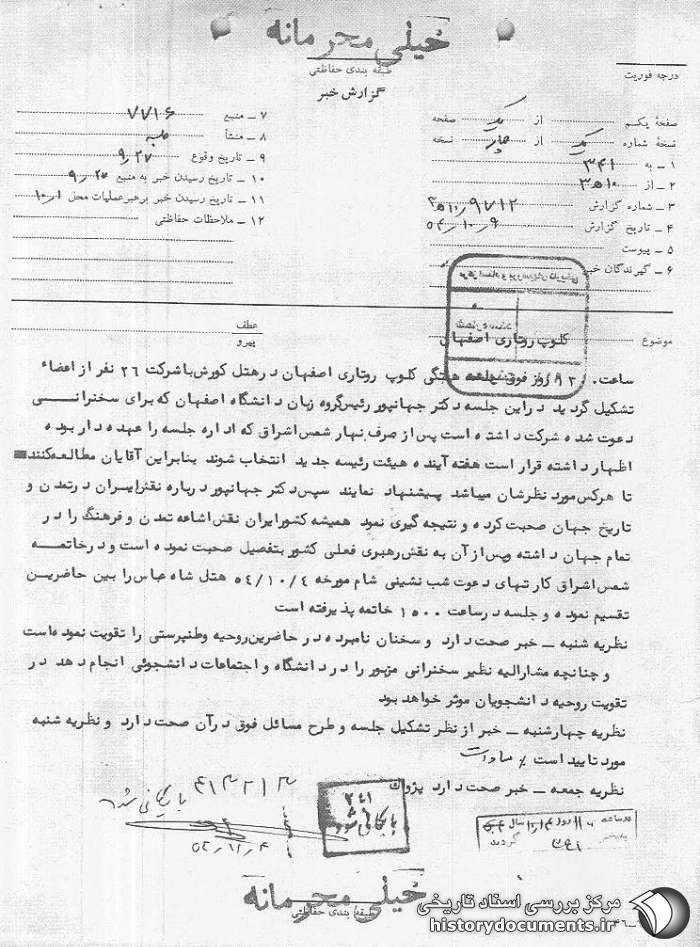 خیلی محرمانه
طبقه بندی حفاظتی
گزارش خبر
درجه فوریت
صفحهٔ یکم از یک صفحه
نسخهٔ شماره یک از چهار نسخه
۱ ـ به ۳۴۱
۲ ـ از ۳ه‍۱۰
۳ ـ شماره گزارش ۳ه‍۱۰/۹۷۱۲
۴ ـ تاریخ گزارش ۵۴/۱۰/۹
۵ ـ پیوست
۶ ـ گیرندگان خبر
۷ ـ منبع ۷۷۱۶
۸ ـ منشأ
۹ ـ تاریخ وقوع ۹/۲۷
۱۰ ـ تاریخ رسیدن خبر به منبع ۹/۲۷
۱۱ ـ تاریخ رسیدن خبر برهبرعملیات محل ۱۰/۱
۱۲ ـ ملاحظات حفاظتی
موضوع کلوپ روتاری اصفهان
عطف
پیرو
ساعت روز فوق جلسه هفتگی کلوپ روتاری اصفهان در هتل کورش با شرکت ۲۶ نفر از اعضاء
تشکیل گردید در این جلسه دکتر جهانپور رئیس گروه زبان دانشگاه اصفهان که برای سخنرانی
دعوت شده شرکت داشته است پس از صرف نهار شمس اشراق که اداره جلسه را عهده دار بوده
اظهار داشته قرار است هفته آینده هیئت رئیسه جدید انتخاب شوند بنابراین آقایان مطالعه کنند
تا هرکس مورد نظرشان میباشد پیشنهاد نمایند سپس دکتر جهانپور درباره نقش ایران در تمدن و
تاریخ جهان صحبت کرده و نتیجه گیری نمود همیشه کشور ایران نقش اشاعه تمدن و فرهنگ را در
تمام جهان داشته وپس از آن به نقش رهبری فعلی کشور بتفصیل صحبت نموده است و در خاتمه
شمس اشراق کارتهای دعوت شب نشینی شام مورخه ۵۴/۱۰/۴ هتل شاه عباس را بین حاضرین
تقسیم نموده و جلسه در ساعت ۱۵۰۰ خاتمه پذیرفته است
نظریه شنبه ـ خبر صحت دارد و سخنان نامبرده در حاضرین روحیه وطنپرستی را تقویت نموده است
و چنانچه مشارالیه نظیر سخنرانی مزبور را در دانشگاه و اجتماعات دانشجوئی انجام دهد در
تقویت روحیه دانشجویان موثر خواهد بود
نظریه چهارشنبه ـ خبر از نظر تشکیل جلسه و طرح مسائل فوق در آن صحت دارد و نظریه شنبه
مورد تایید است
نظریه جمعه ـ خبر صحت دارد پژواک
بایگانی شود
۳۴۱
بایگانی شود
خیلی محرمانه
طبقه بندی حفاظتی
مرکز بررسی اسناد تاریخی
historydocuments.ir